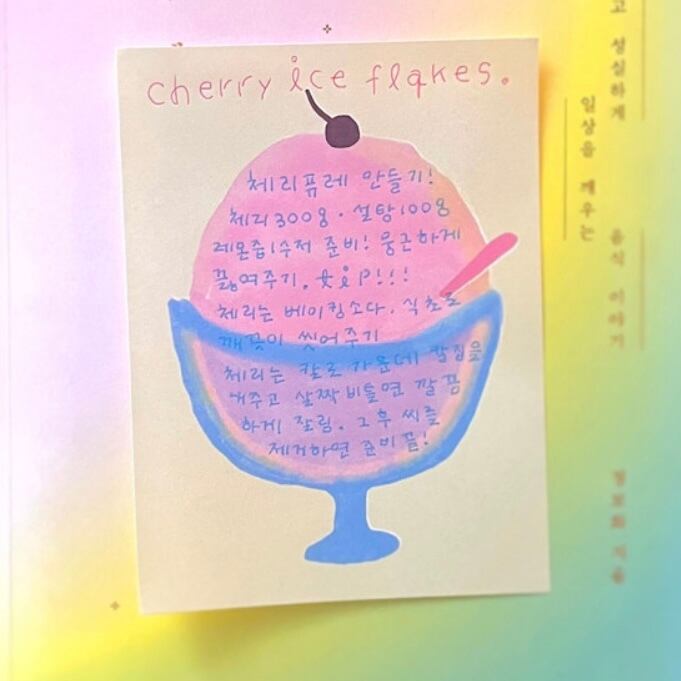 cherry ice flakes.
체리퓨레 만들기!
체리300g. 설탕100g
레몬즙1수저 준비! 뭉근하게
끓여주기. tip!!!
체리는 베이킹소다. 식초로
깨끗이 씻어주기
체리는 칼로 가운데 칼집을
내주고 살짝 비틀면 깔끔
하게 잘림. 그후 씨를
제거하면 준비끝!
고 성실하게
일상을 깨우는
음식 이야기
정보화 지음